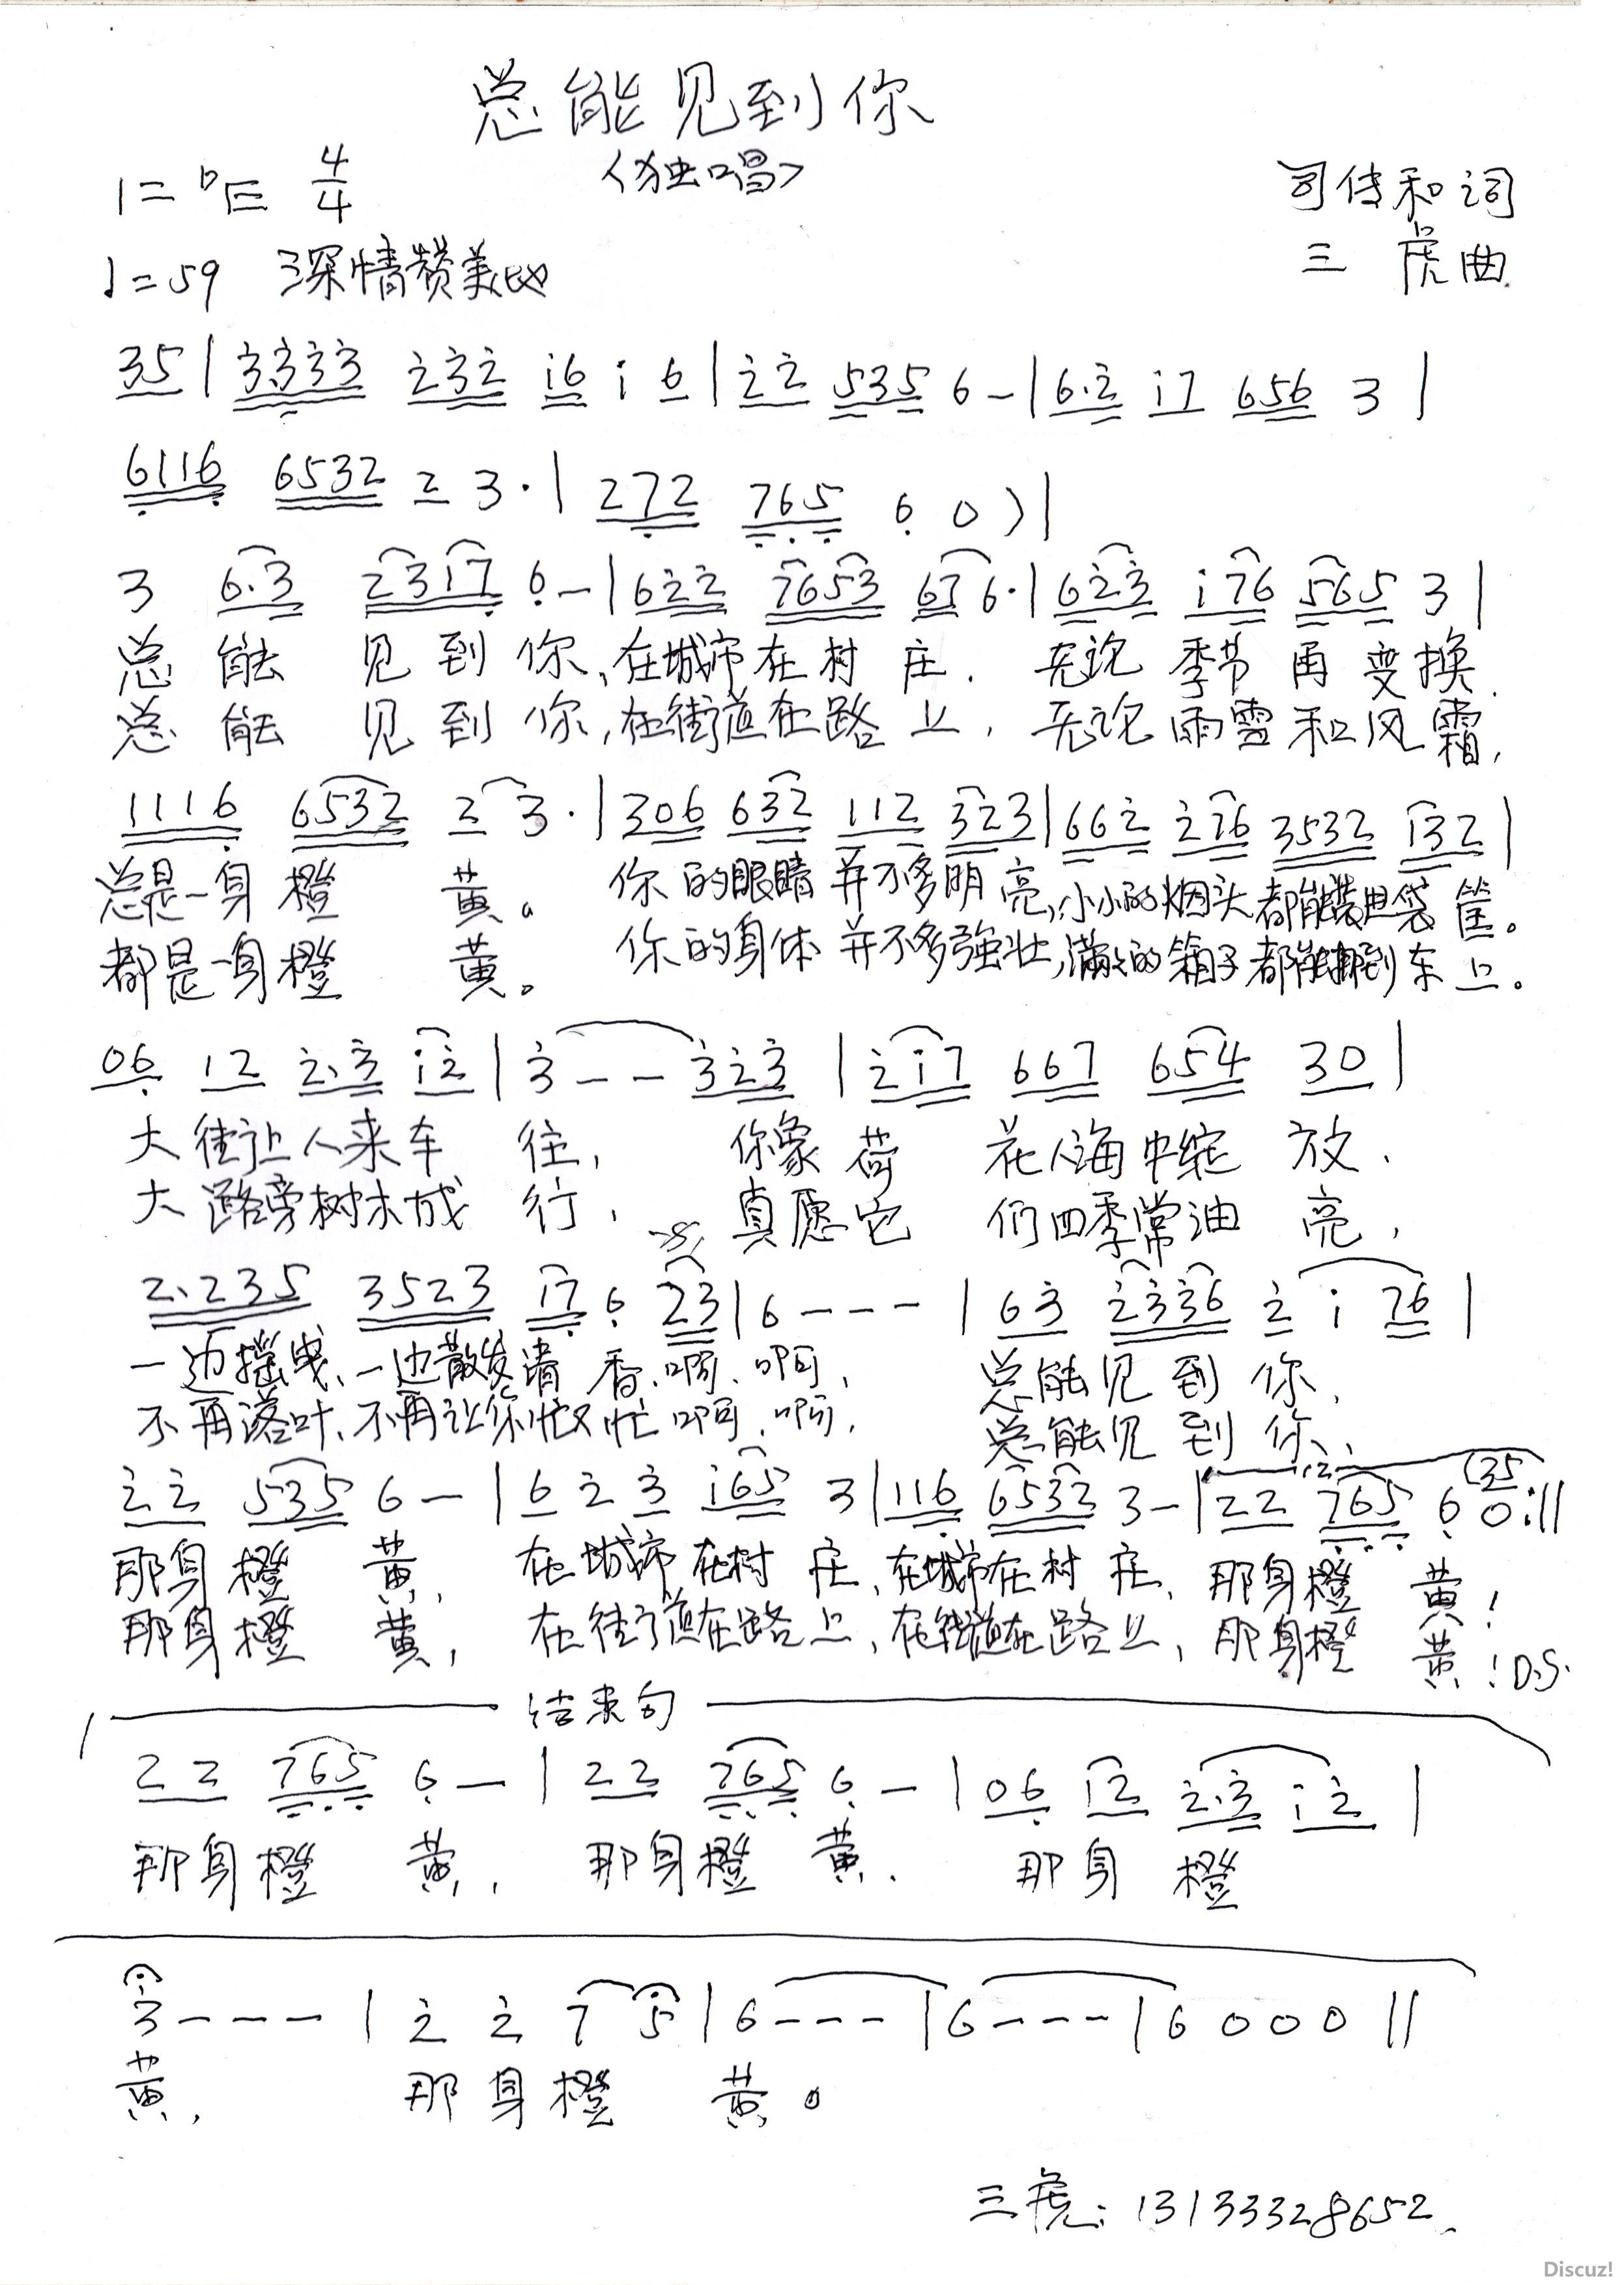 总能见到你
1=bE 4/4
〈独唱〉
司传和词
♩=59 深情赞美地
三虎曲
35|3.333 232 i6 i 6|22 535 6-|6.2 i7 656 3|
6116 6532 2 3.|272 765 6 0)|
3 6.3 23i7 6-|622 7653 67 6.|623 i76 565 3|
总能见到你,在城市在村庄.无论季节再变换.
总能见到你,在街道在路上,无论雨雪和风霜,
1116 6532 2 3.|306 632 112 323|662 2i6 3532 i32|
总是一身橙黄。你的眼睛并不多明亮,小小的烟头都能装进袋筐。
都是一身橙黄。你的身体并不多强壮,满满的箱子都能挪到车上。
06 12 2.3 i2|3--323|2i7 667 654 30|
大街让人来车往,你象荷花人海中绽放.
大路旁树木成行,真愿它们四季常油亮,
2.235 3523 i7 6 23|6---|63 2336 2 i 76|
一边摇曳、一边散发清香.啊.啊,总能见到你,
不再落叶、不再让你忙又忙啊.啊,总能见到你、
22 535 6-|6 2 3 i65 3|116 6532 3-|22 765 6 0:||
1.2.
(35
那身橙黄,在城市在村庄、在城市在村庄、那身橙黄!
那身橙黄,在街道在路上,在街道在路上,那身橙黄!D.S.
结束句
22 765 6-|22 765 6-|06 i2 2.3 i2|
那身橙黄,那身橙黄.那身橙
3---|2 2 7 5|6---|6---|6000||
黄,那身橙黄。
三虎:13133328652
Discuz!